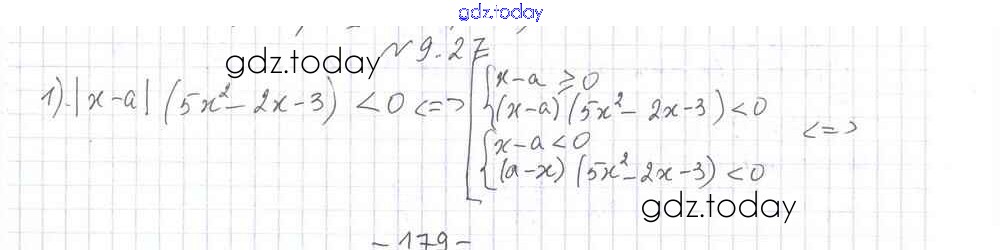 gdz.today
№ 9.27
gdz.today
1). |x-a| (5x²- 2x-3) <0 <=> [ { x-a ⩾ 0
(x-a) (5x²- 2x-3) <0
{ x-a <0
(a-x) (5x²-2x-3) <0 <=>
gdz.today
-179-